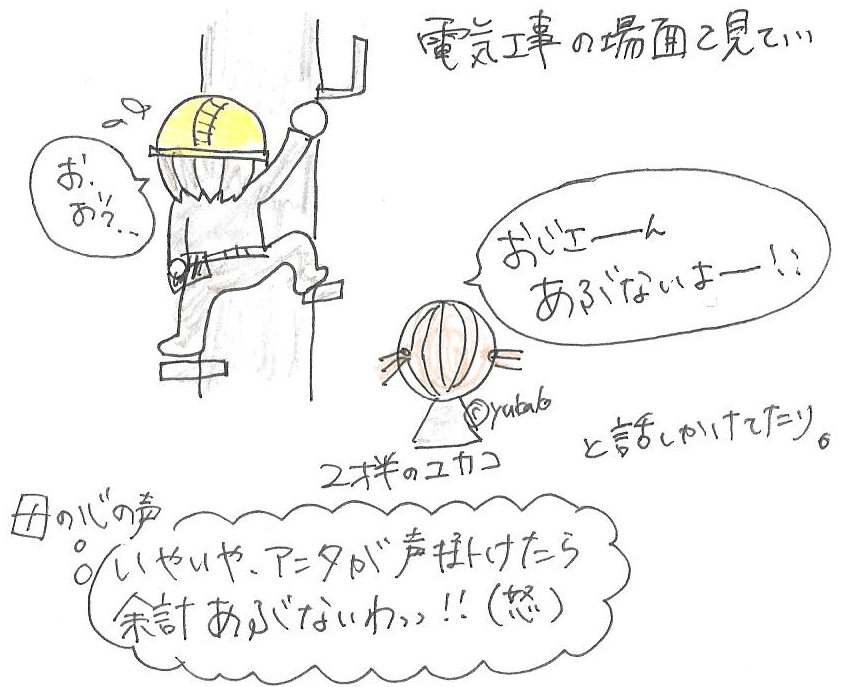 電気工事の場面を見て…
お、
おう…
おじエーん
あぶないよー!!
©yukako
2才半のユカコ
と話しかけてたり。
母の心の声
いやいや、アンタが声掛けたら
余計あぶないわっっ!!(怒)